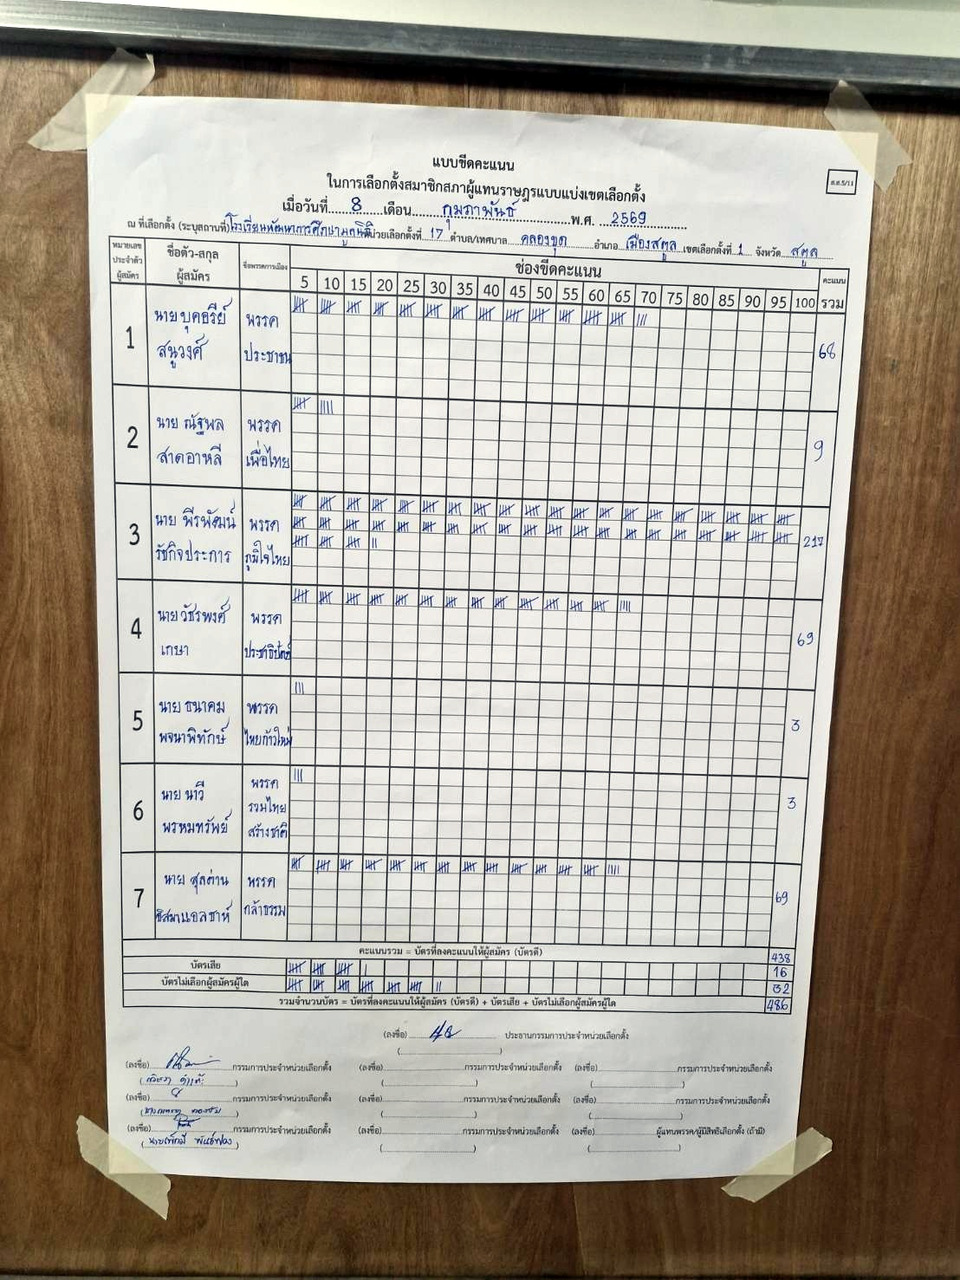 แบบขีดคะแนน
ส.ส.5/11
ในการเลือกตั้งสมาชิกสภาผู้แทนราษฎรแบบแบ่งเขตเลือกตั้ง
เมื่อวันที่ 8 เดือน กุมภาพันธ์ พ.ศ. 2569
ณ ที่เลือกตั้ง (ระบุสถานที่) โรงเรียนพัฒนาการศึกษามูลนิธิ หน่วยเลือกตั้งที่ 17 ตำบล/เทศบาล คลองขุด อำเภอ เมืองสตูล เขตเลือกตั้งที่ 1 จังหวัด สตูล
หมายเลขประจำตัวผู้สมัคร ชื่อตัว-สกุล ผู้สมัคร ชื่อพรรคการเมือง ช่องขีดคะแนน คะแนนรวม
5 10 15 20 25 30 35 40 45 50 55 60 65 70 75 80 85 90 95 100
1 นาย บุคอรีย์ สนูวงศ์ พรรค ประชาชน 68
2 นาย ณัฐพล สาดอาหลี พรรค เพื่อไทย 9
3 นาย พีรพัฒน์ รัชกิจประการ พรรค ภูมิใจไทย 217
4 นาย วัชรพงศ์ เกษา พรรค ประชาธิปัตย์ 69
5 นาย ธนาคม พจนาพิทักษ์ พรรค ไทยก้าวใหม่ 3
6 นาย นาวี พรหมทรัพย์ พรรค รวมไทยสร้างชาติ 3
7 นาย สุลต่าน พรรค กล้าธรรม 69
คะแนนรวม = บัตรที่ลงคะแนนให้ผู้สมัคร (บัตรดี) 438
บัตรเสีย 16
บัตรไม่เลือกผู้สมัครผู้ใด 32
รวมจำนวนบัตร = บัตรที่ลงคะแนนให้ผู้สมัคร (บัตรดี) + บัตรเสีย + บัตรไม่เลือกผู้สมัครผู้ใด 486
(ลงชื่อ) ประธานกรรมการประจำหน่วยเลือกตั้ง
(ลงชื่อ) กรรมการประจำหน่วยเลือกตั้ง (ลงชื่อ) กรรมการประจำหน่วยเลือกตั้ง (ลงชื่อ) กรรมการประจำหน่วยเลือกตั้ง
(ลงชื่อ) กรรมการประจำหน่วยเลือกตั้ง (ลงชื่อ) กรรมการประจำหน่วยเลือกตั้ง (ลงชื่อ) กรรมการประจำหน่วยเลือกตั้ง
(ลงชื่อ) กรรมการประจำหน่วยเลือกตั้ง (ลงชื่อ) กรรมการประจำหน่วยเลือกตั้ง (ลงชื่อ) ผู้แทนพรรค/ผู้มีสิทธิเลือกตั้ง (ถ้ามี)